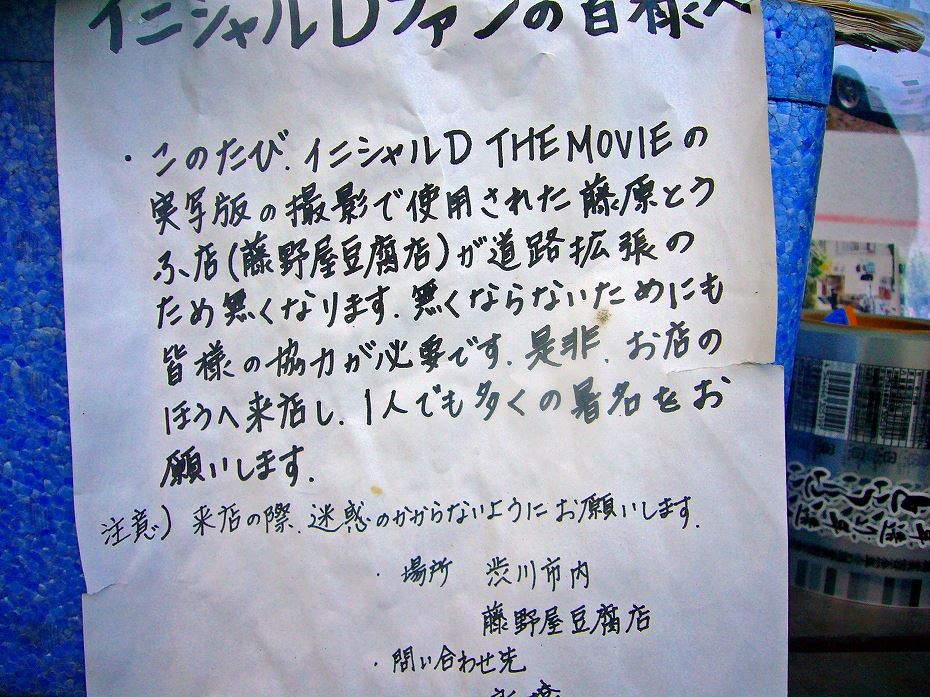 イニシャルDファンの皆様へ
・このたび、イニシャルD THE MOVIEの
実写版の撮影で使用された藤原とう
ふ店(藤野屋豆腐店)が道路拡張の
ため無くなります。無くならないためにも
皆様の協力が必要です。是非、お店の
ほうへ来店し、1人でも多くの署名をお
願いします。
注意)来店の際、迷惑のかからないようにお願いします。
・場所 渋川市内
藤野屋豆腐店
・問い合わせ先